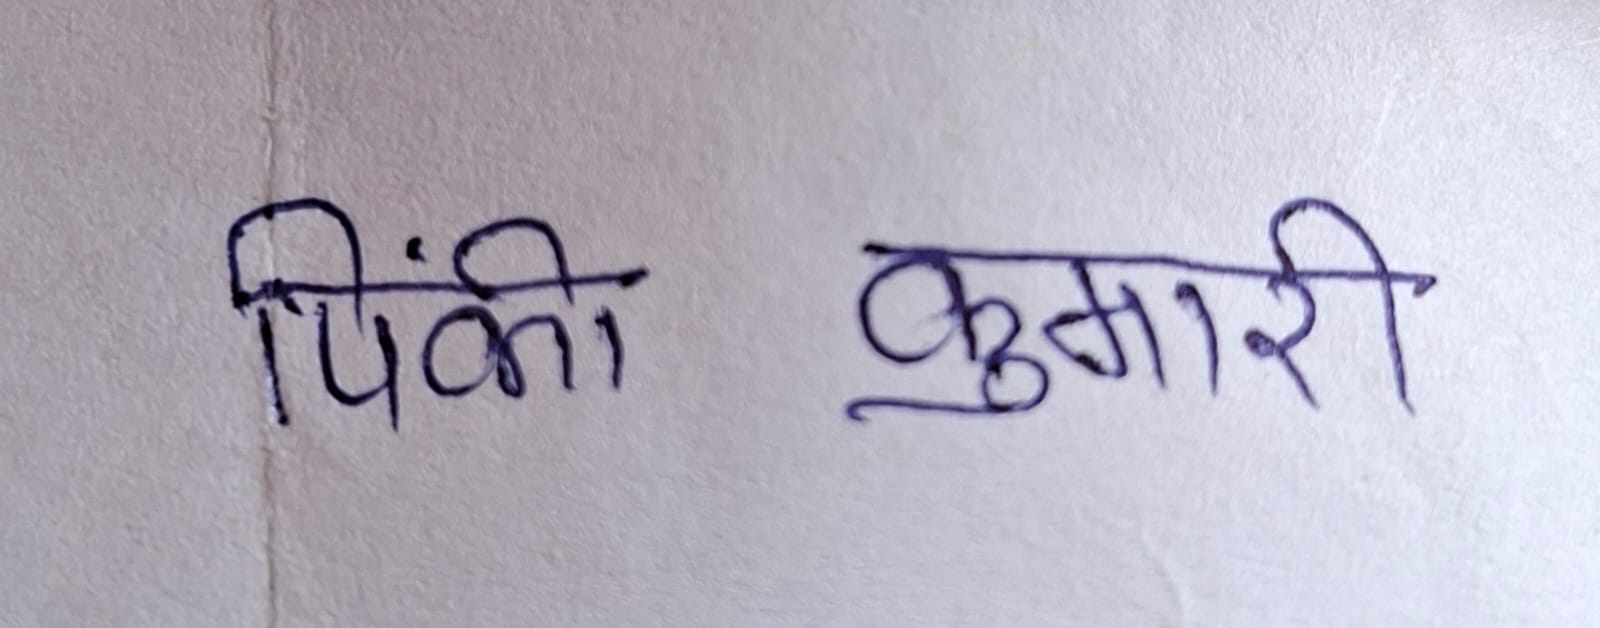 पिंकी कुमारी